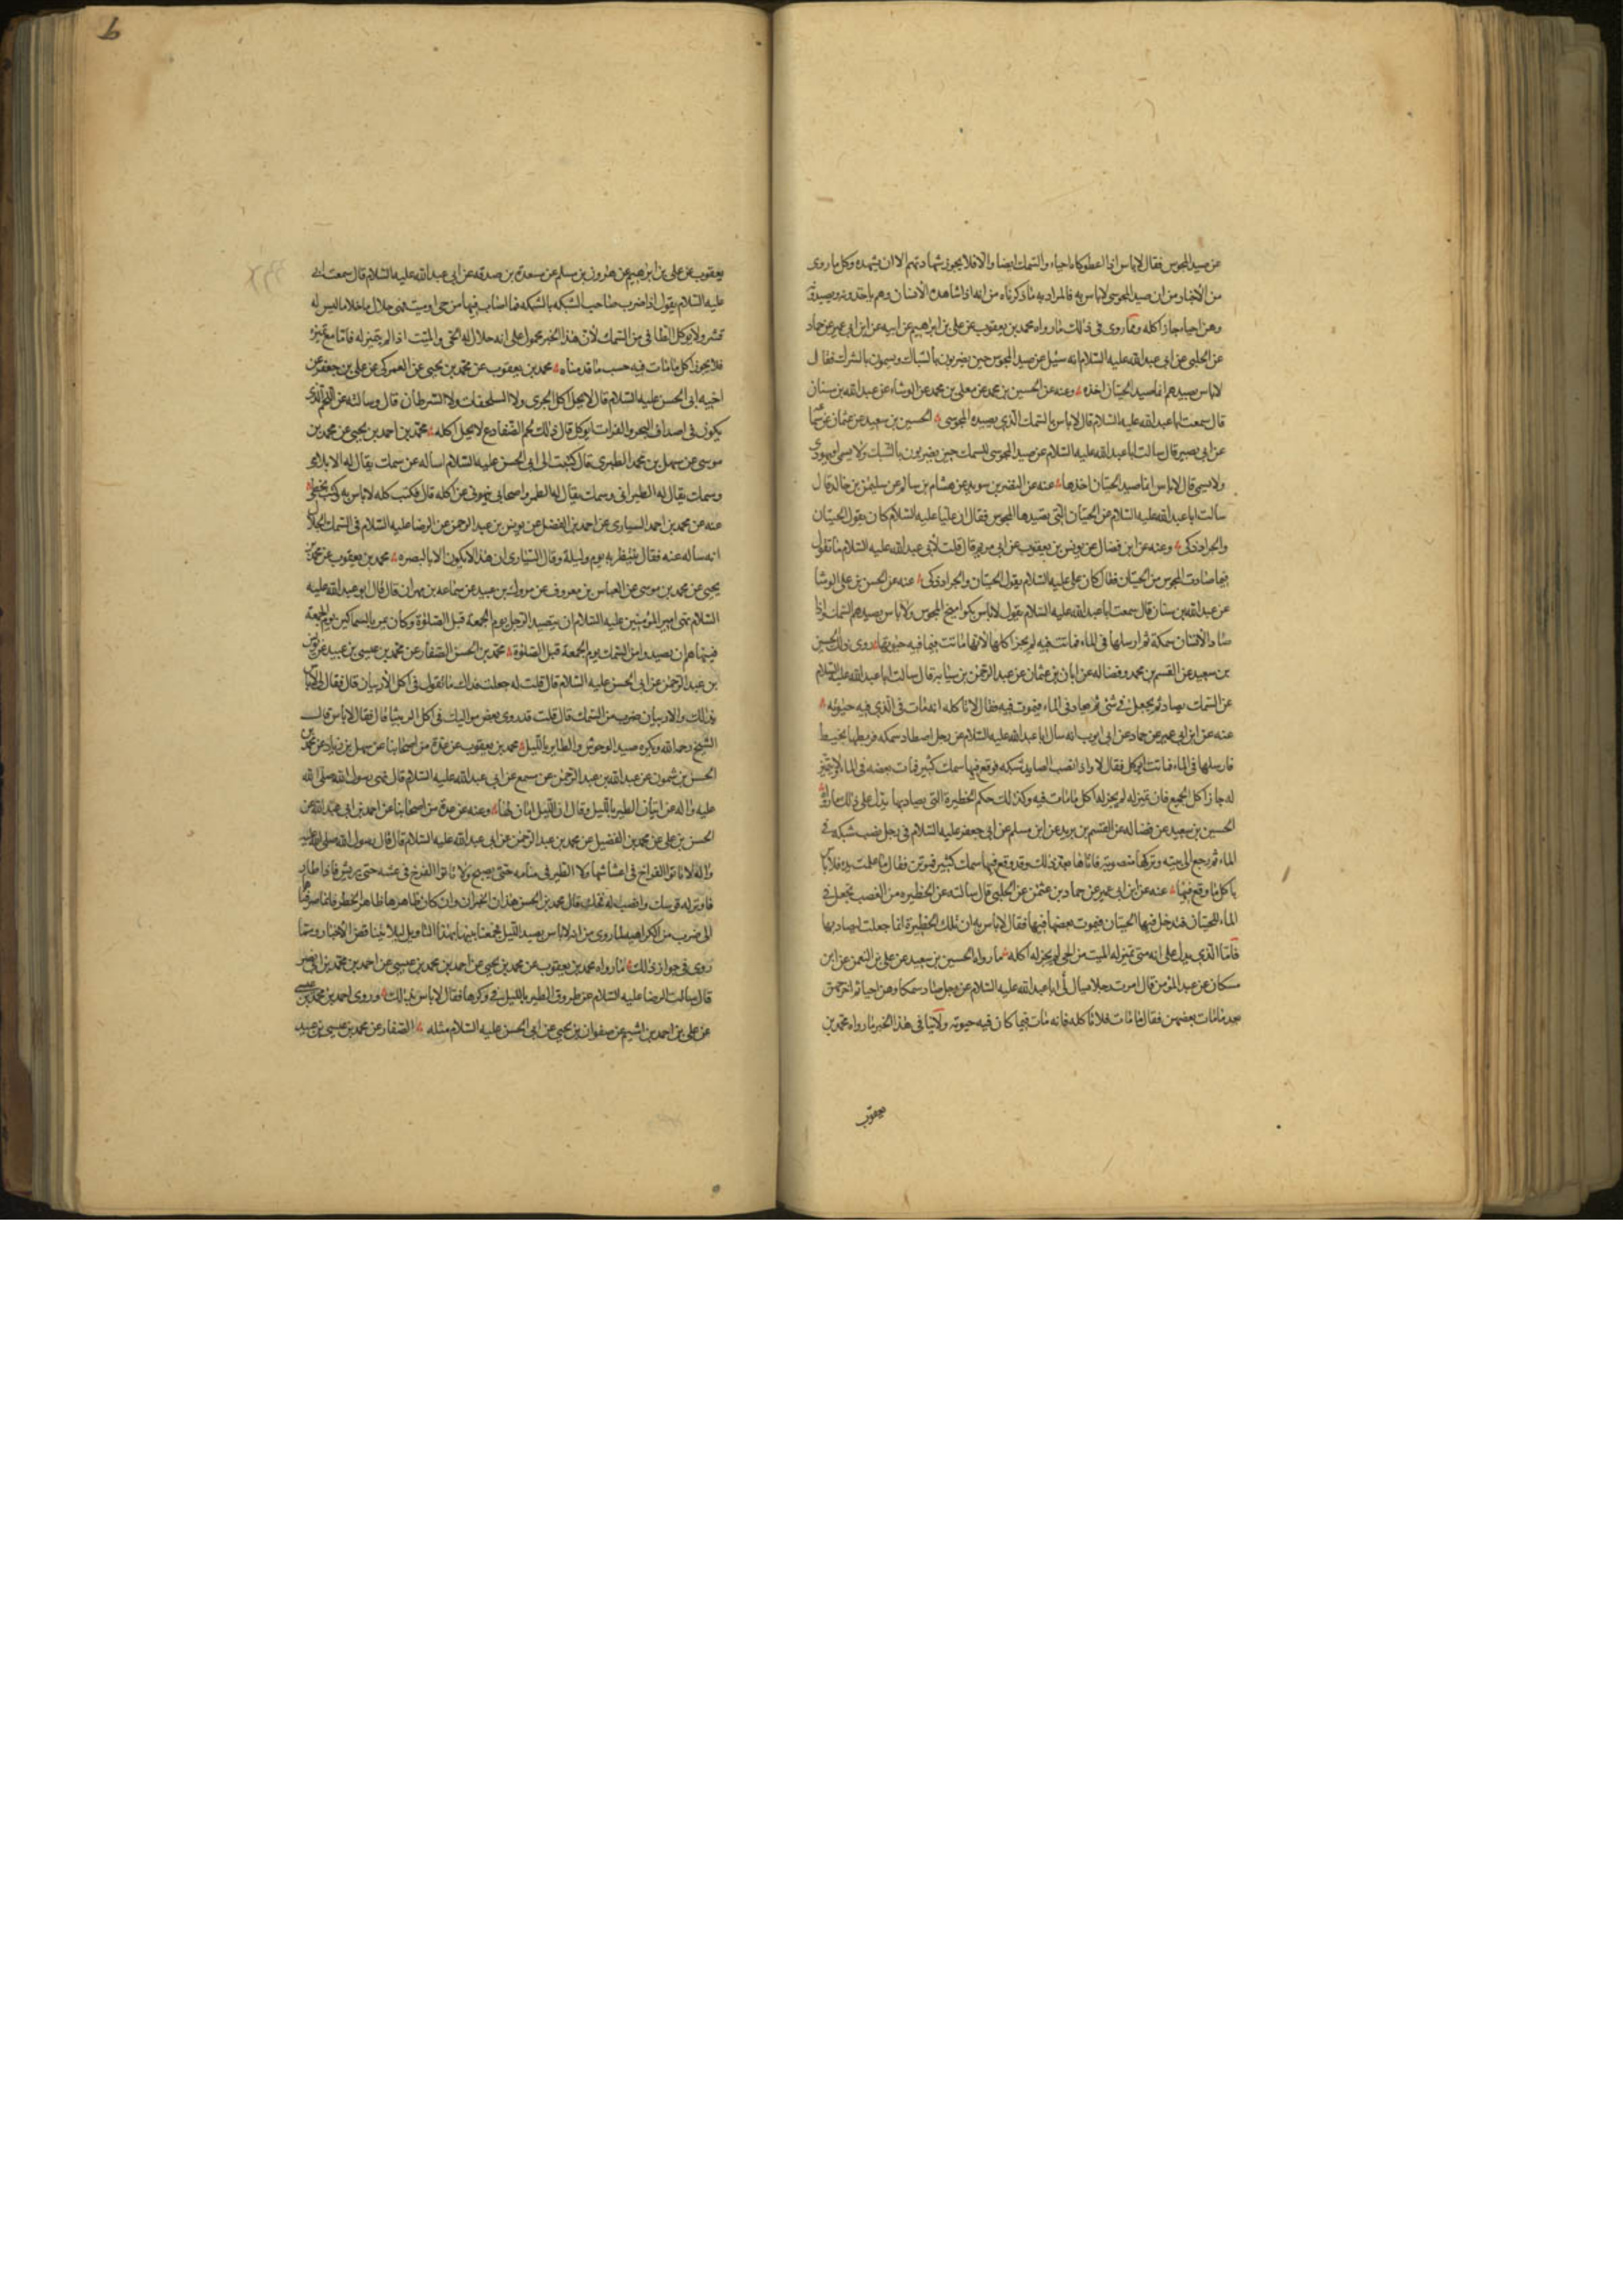 عن صيد المجوس فقال لا باس اذا اعطوكاه احياء والسمك ايضا والا فلا يجوز شهادتهم الا ان يشهده وكل ما روى
من الأخبار من ان صيد المجوسى لا باس به فالمراد به ما ذكرناه من انه اذا شاهده الانسان وهم ياخذونه ويصيدونه
وهن احياء جاز اكله ومما روى فى ذلك ما رواه محمد بن يعقوب عن على بن ابراهيم عن ابيه عن ابن ابى عمير عن حماد
عن الحلبى عن ابى عبد الله عليه السلام انه سئل عن صيد المجوس حين يضربون بالشباك ويسمون بالشرك فقال
لا باس بصيدهم انما صيد الحيتان اخذه وعنه عن الحسين بن محمد عن معلى بن محمد عن الوشاء عن عبد الله بن سنان
قال سمعت ابا عبد الله عليه السلام قال لا باس بالسمك الذى يصيده المجوسى الحسين بن سعيد عن عثمان عن سماعة
عن ابى بصير قال سالت ابا عبد الله عليه السلام عن صيد المجوسى للسمك حين يضربون بالشبك ولا يسمى او يهودى
ولا يسمى قال لا باس انما صيد الحيتان اخذها عنه عن النضر بن سويد عن هشام بن سالم عن سليمن بن خالد قال
سالت ابا عبد الله عليه السلام عن الحيتان التى يصيدها المجوس فقال ان عليا عليه السلام كان يقول الحيتان
والجراد ذكى وعنه عن ابن فضال عن يونس بن يعقوب عن ابى مريم قال قلت لأبى عبد الله عليه السلام ما تقول
فيما صادت المجوس من الحيتان فقال كان على عليه السلام يقول الحيتان والجراد ذكى عنه عن الحسن بن على الوشا
عن عبد الله بن سنان قال سمعت ابا عبد الله عليه السلام يقول لا باس بكواميخ المجوس ولا باس بصيدهم السمك واذا
صاد الانسان سمكة ثم ارسلها فى الماء فماتت فيه لم يجز اكلها لانها ماتت فيما فيه حيوتها روى ذلك الحسين
بن سعيد عن القسم بن محمد وفضاله عن ابان بن عثمان عن عبد الرحمن بن سيابه قال سالت ابا عبد الله عليه السلام
عن السمك يصاد ثم يجعل فى شئ ثم يعاد فى الماء فيموت فيه فقال لا تاكله انه مات فى الذى فيه حيوته
عنه عن ابن ابى عمير عن حماد عن ابى ايوب انه سال ابا عبد الله عليه السلام عن رجل اصطاد سمكه فربطها بخيط
فارسلها فى الماء فماتت أتوكل فقال لا واذا نصب الصايد شبكه فوقع فيها سمك كثير فمات بعضه فى الماء ولا يتميز
له جاز اكل الجميع فان تميز له لم يجز له اكل ما مات فيه وكذلك حكم الحظيرة التى يصاد بها يدل على ذلك ما رواه
الحسين بن سعيد عن فضاله عن القسم بن بريد عن ابن مسلم عن ابى جعفر عليه السلام فى رجل نصب شبكه فى
الماء ثم رجع الى بيته وتركها منصوبة فاتاها بعد ذلك وقد وقع فيها سمك كثير فيموتن فقال ما عملت يده فلا باس
ياكل ما وقع فيها عنه عن ابن ابى عمير عن حماد بن عثمن عن الحلبى قال سالته عن الحظيره من القصب يجعل فى
الماء للحيتان فتدخل فيها الحيتان فيموت بعضها فيها فقال لا باس به ان تلك الحظيرة انما جعلت ليصاد بها
فاما الذى يدل على انه متى تميز له الميت من الحى لم يجز له اكله ما رواه الحسين بن سعيد عن على بن النعمن عن ابن
مسكان عن عبد المؤمن قال امرت رجلا ميال لى ابا عبد الله عليه السلام عن رجل صاد سمكا وهن احيا ثم اخرجهن
بعد ما مات بعضهن فقال ما مات فلا تاكله فانه مات فيما كان فيه حيوته ولا ينافى هذا الخبر ما رواه محمد بن
يعقوب
يعقوب عن على بن ابرهيم عن هرون بن مسلم عن مسعدة بن صدقه عن ابى عبد الله عليه السلام قال سمعت ابى
عليه السلام يقول اذا ضرب صاحب الشبكه بالشبكه فما اصاب فيها من حى او ميت فهى حلال ما خلا ما ليس له
قشر ولا يوكل الطافى من السمك لأن هذا الخبر محمول على انه حلال له الحى والميت اذا لم يتميز له فاما مع تميزه
فلا يجوز اكل ما مات فيه حسب ما قدمناه محمد بن يعقوب عن محمد بن يحيى عن العمركى عن على بن جعفر عن
اخيه ابى الحسن عليه السلام قال لا يحل اكل الجرى ولا السلحفات ولا السرطان قال وسالته عن اللحم الذى
يكون فى اصداف البحر والفرات ايوكل قال ذلك لحم الضفادع لا يحل اكله محمد بن احمد بن يحيى عن محمد بن
موسى عن سهل بن محمد الطبرى قال كتبت الى ابى الحسن عليه السلام اساله عن سمك يقال له الابلامى
وسمك يقال له الطبرانى وسمك يقال له الطمر واصحابى ينهونى عن اكله قال فكتب كله لا باس به كتبت بخطى
عنه عن محمد بن احمد السيارى عن احمد بن الفضل عن يونس بن عبد الرحمن عن الرضا عليه السلام فى السمك الجلال
انه ساله عنه فقال ينتظر به يوم وليلة وقال السيارى ان هذا لا يكون الا بالبصره محمد بن يعقوب عن محمد بن
يحيى عن محمد بن موسى عن العباس بن معروف عن مروك بن عبيد عن سماعه بن مهران قال قال ابو عبد الله عليه
السلام نهى امير المؤمنين عليه السلام ان يتصيد الرجل يوم الجمعة قبل الصلوة وكان يمر بالسماكين يوم الجمعة
فينهاهم ان يصيدوا من السمك يوم الجمعة قبل الصلوة محمد بن الحسن الصفار عن محمد بن عيسى بن عبيد عن يونس
بن عبد الرحمن عن ابى الحسن عليه السلام قال قلت له جعلت فداك ما تقول فى اكل الأربيان قال فقال لى لا باس
بذلك والاربيان ضرب من السمك قال قلت قد روى بعض مواليك فى اكل الربيثا قال فقال لا باس قال
الشيخ رحمه الله ويكره صيد الوحوش والطاير بالليل محمد بن يعقوب عن عدة من اصحابنا عن سهل بن زياد عن محمد بن
الحسن بن شمون عن عبد الله بن عبد الرحمن عن مسمع عن ابى عبد الله عليه السلام قال نهى رسول الله صلى الله
عليه واله عن اتيان الطير بالليل وقال ان الليل امان لها وعنه عن عدة من اصحابنا عن احمد بن ابى عبد الله عن
الحسن بن على عن محمد بن الفضيل عن محمد بن عبد الرحمن عن ابى عبد الله عليه السلام قال قال رسول الله صلى الله عليه
واله لا تاتوا الفراخ فى اعشاشها ولا الطير فى منامه حتى يصبح ولا تاتوا الفرخ فى عشه حتى يريش فاذا طار
فاوتر له قوسك وانصب له فخك قال محمد بن الحسن هذان الخبران وان كان ظاهرهما ظاهر الحظر فانما صرفناهما
الى ضرب من الكراهيه لما روى من انه لا باس بصيد الليل فجمعنا بينها بهذا التاويل ليلا يتناقض الأخبار ومما
روى فى جواز ذلك ما رواه محمد بن يعقوب عن محمد بن يحيى عن احمد بن محمد بن عيسى عن احمد بن محمد بن ابى نصر
قال سالت الرضا عليه السلام عن طروق الطير بالليل فى وكرها فقال لا باس بذلك وروى احمد بن محمد بن عيسى
عن على بن احمد بن اشيم عن صفوان بن يحيى عن ابى الحسن عليه السلام مثله الصفار عن محمد بن عيسى بن عبيد